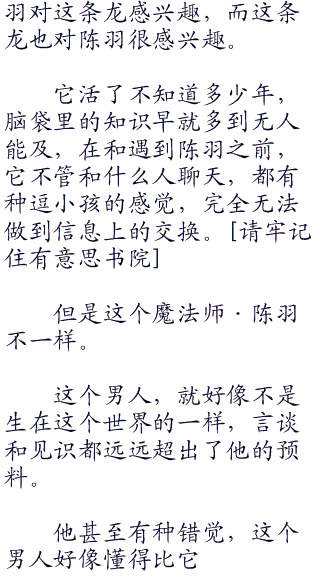 羽对这条龙感兴趣，而这条
龙也对陈羽很感兴趣。
它活了不知道多少年，
脑袋里的知识早就多到无人
能及，在和遇到陈羽之前，
它不管和什么人聊天，都有
种逗小孩的感觉，完全无法
做到信息上的交换。[请牢记
住有意思书院]
但是这个魔法师·陈羽
不一样。
这个男人，就好像不是
生在这个世界的一样，言谈
和见识都远远超出了他的预
料。
他甚至有种错觉，这个
男人好像懂得比它